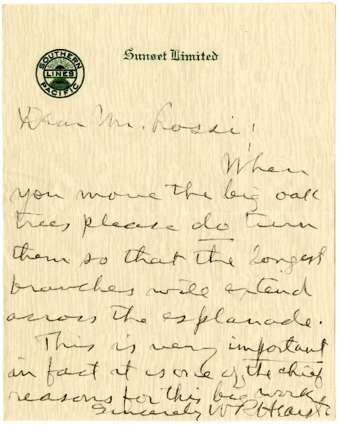 SOUTHERN
LINES
PACIFIC
Sunset Limited
Dear Mr. Rossi!
When
you move the big oak
trees please do turn
them so that the longest
branches will extend
across the esplanade.
This is very important
in fact it is one of the chief
reasons for this big work
Sincerely WRHearst